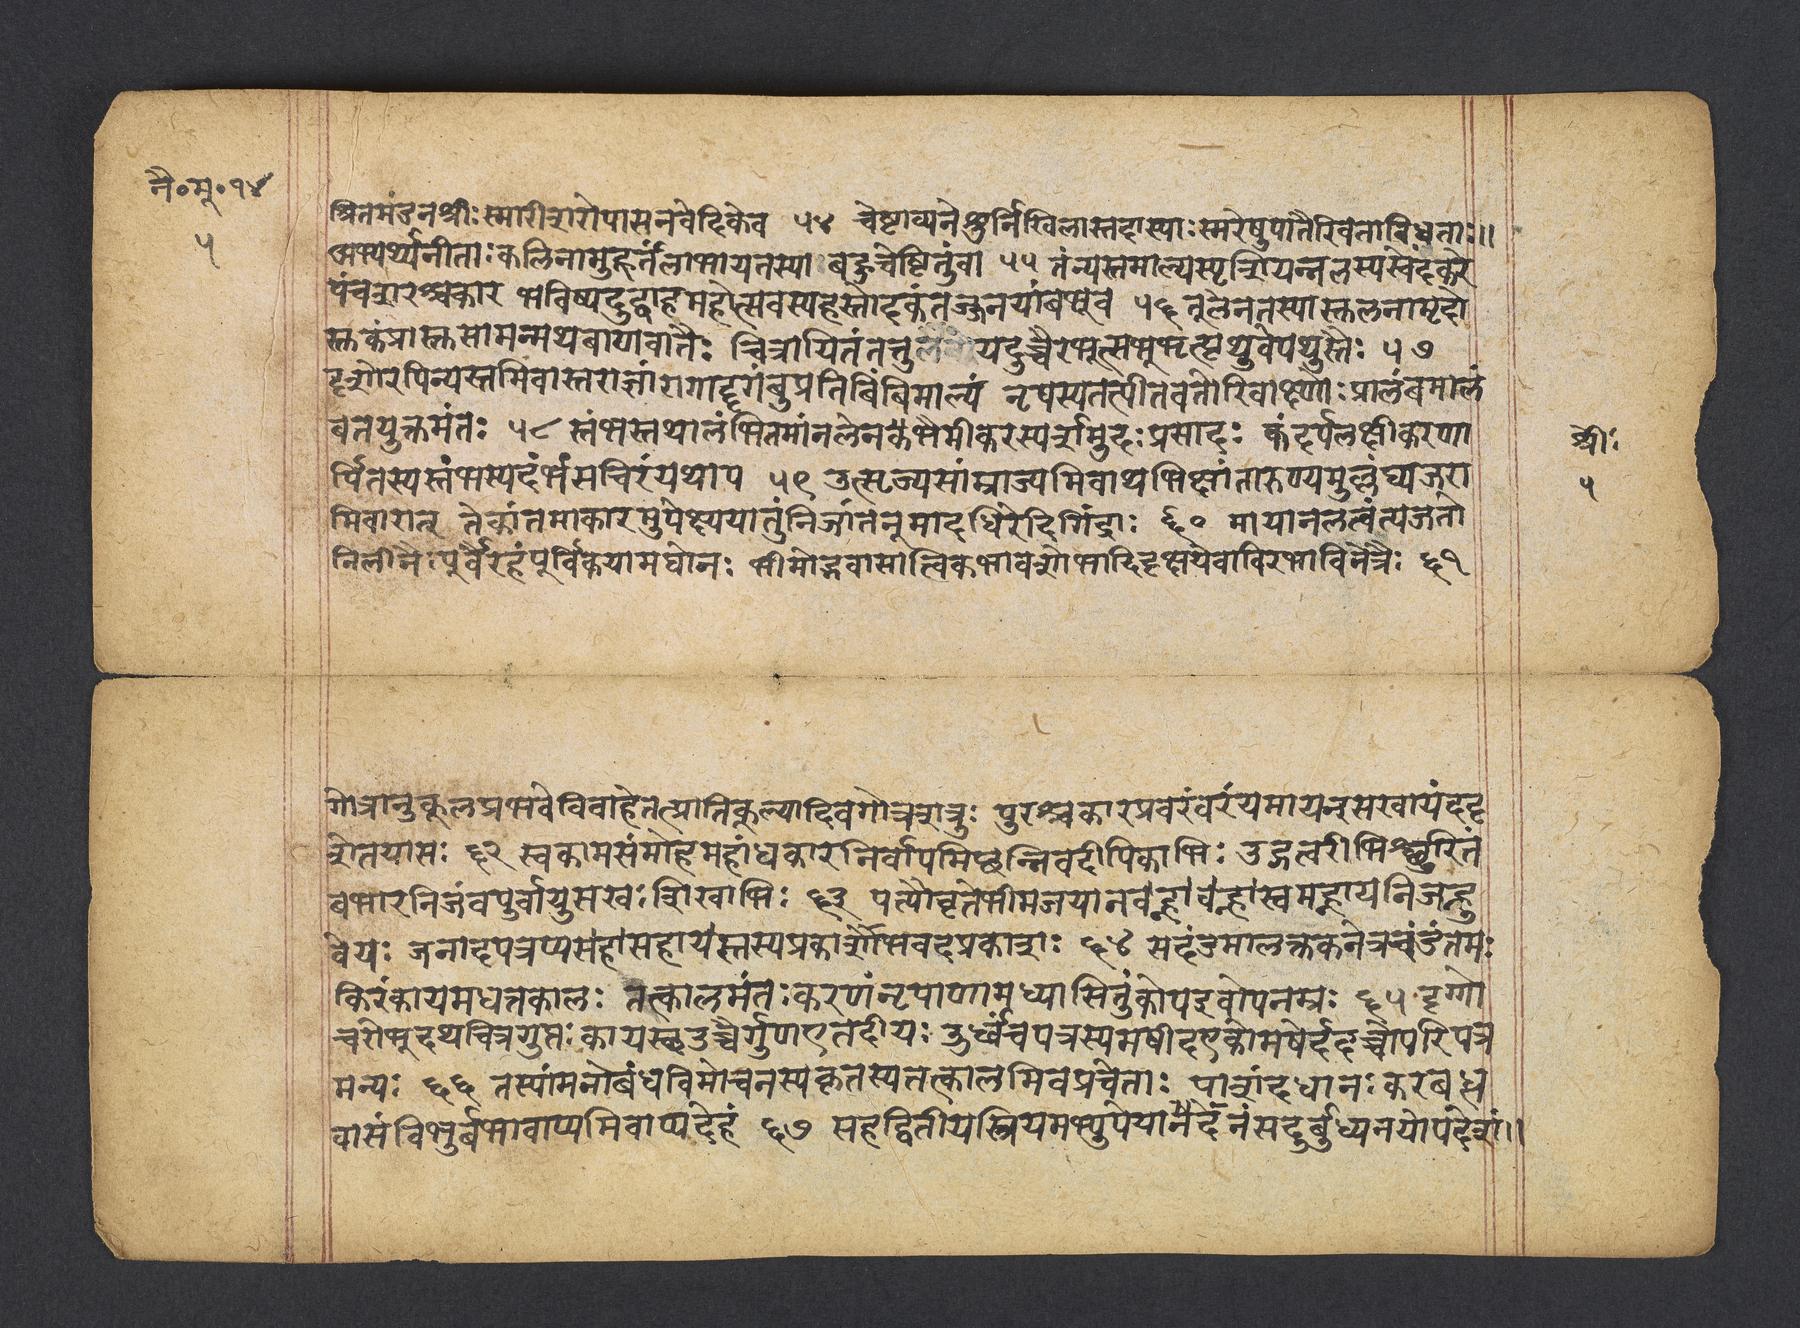 नै॰मू॰१४
५
श्रितमंडनश्रीः स्मारीशरोपासनवेदिकेव ५४ चेष्टाव्यनेशुर्निखिलास्तदास्याः स्मरेषुपातैरिवताविधूताः॥
अभ्यर्थ्यनीताः कलिनामुहूर्तंलाभायतस्या बहुचेष्टितुंवा ५५ तंन्यस्तमाल्यस्पृशियन्नलस्यस्वेदंकरे
पंचशरश्चकार भविष्यदुद्वाहमहोत्सवस्यहस्तोदकंतज्जनयांबभूव ५६ तूलेनतस्यास्तुलनामृदो
स्तत्कंप्रास्तुसामन्मथबाणवातैः चित्रीयितंतत्तु यदुच्चैरभूत्सभूभृत्पृथुवेपथुस्तैः ५७
दृशोरपिन्यस्तमिवास्तराज्ञांरागाद्दृगंबुप्रतिबिंबिमाल्यं नृपस्यतत्पीतवतोरिवाक्ष्णोः प्रालंबमालं
बतयुक्तमंतः ५८ स्तंभस्तथालंभितमांनलेनभैमीकरस्पर्शमुदःप्रसादः कंदर्पलक्षीकरणा
र्पितस्यस्तंभस्यदंभंसचिरंयथाप ५९ उत्सृज्यसांम्राज्यमिवाथभिक्षांतारुण्यमुल्लंघ्यजरा
मिवारात् तंकांतमाकारमुपेक्ष्ययातुंनिजांतनूमादधिरेदिगिंद्राः ६० मायानलत्वंत्यजतो
निलीनैः पूर्वैरहंपूर्विकयामघोनः भीमोद्भवासात्विकभावशोभादिदृक्षयेवाविरभाविनेत्रैः ६१
श्रीः
५
गोत्रानुकूलप्रभवेविवाहेतत्प्रातिकूल्यादिवगोत्रशत्रुः पुरश्चकारप्रवरंवरंयमायन्सखायंददृ
शेतयासः ६२ स्वकामसंमोहमहांधकारनिर्वापमिच्छन्निवदीपिकाभिः उद्गत्वरीभिश्छुरितं
वभारनिजंवपुर्वायुसखःशिखाभिः ६३ पत्यौवृतेभीमजयानवह्नावह्नास्वमह्नायनिजुह्नु
वेयः जनादपत्रप्यसहासहायस्तस्यप्रकाशोभवदप्रकाशः ६४ सदंडमालक्तकनेत्रचंडंतमः
किरंकायमधत्तकालः तत्कालमंतःकरणंनृपाणामध्यासितुंकोपइवोपनम्रः ६५ दृग्गो
चरोभूदथचित्रगुप्तःकायस्थउच्चैर्गुणएतदीयः उर्ध्वंचपत्रस्यमषीदएकोमषेर्ददच्चोपरिपत्र
मन्यः ६६ तस्यांमनोबंधविमोचनस्यकृतस्यतत्कालमिवप्रचेताः पाशंदधानःकरबद्ध
वासंविभुर्बभावाप्यमिवाप्यदेहं ६७ सहद्वितीयस्त्रियमभ्युपेयान्नैदंनंसदुर्बुध्यनयोपदेशं॥